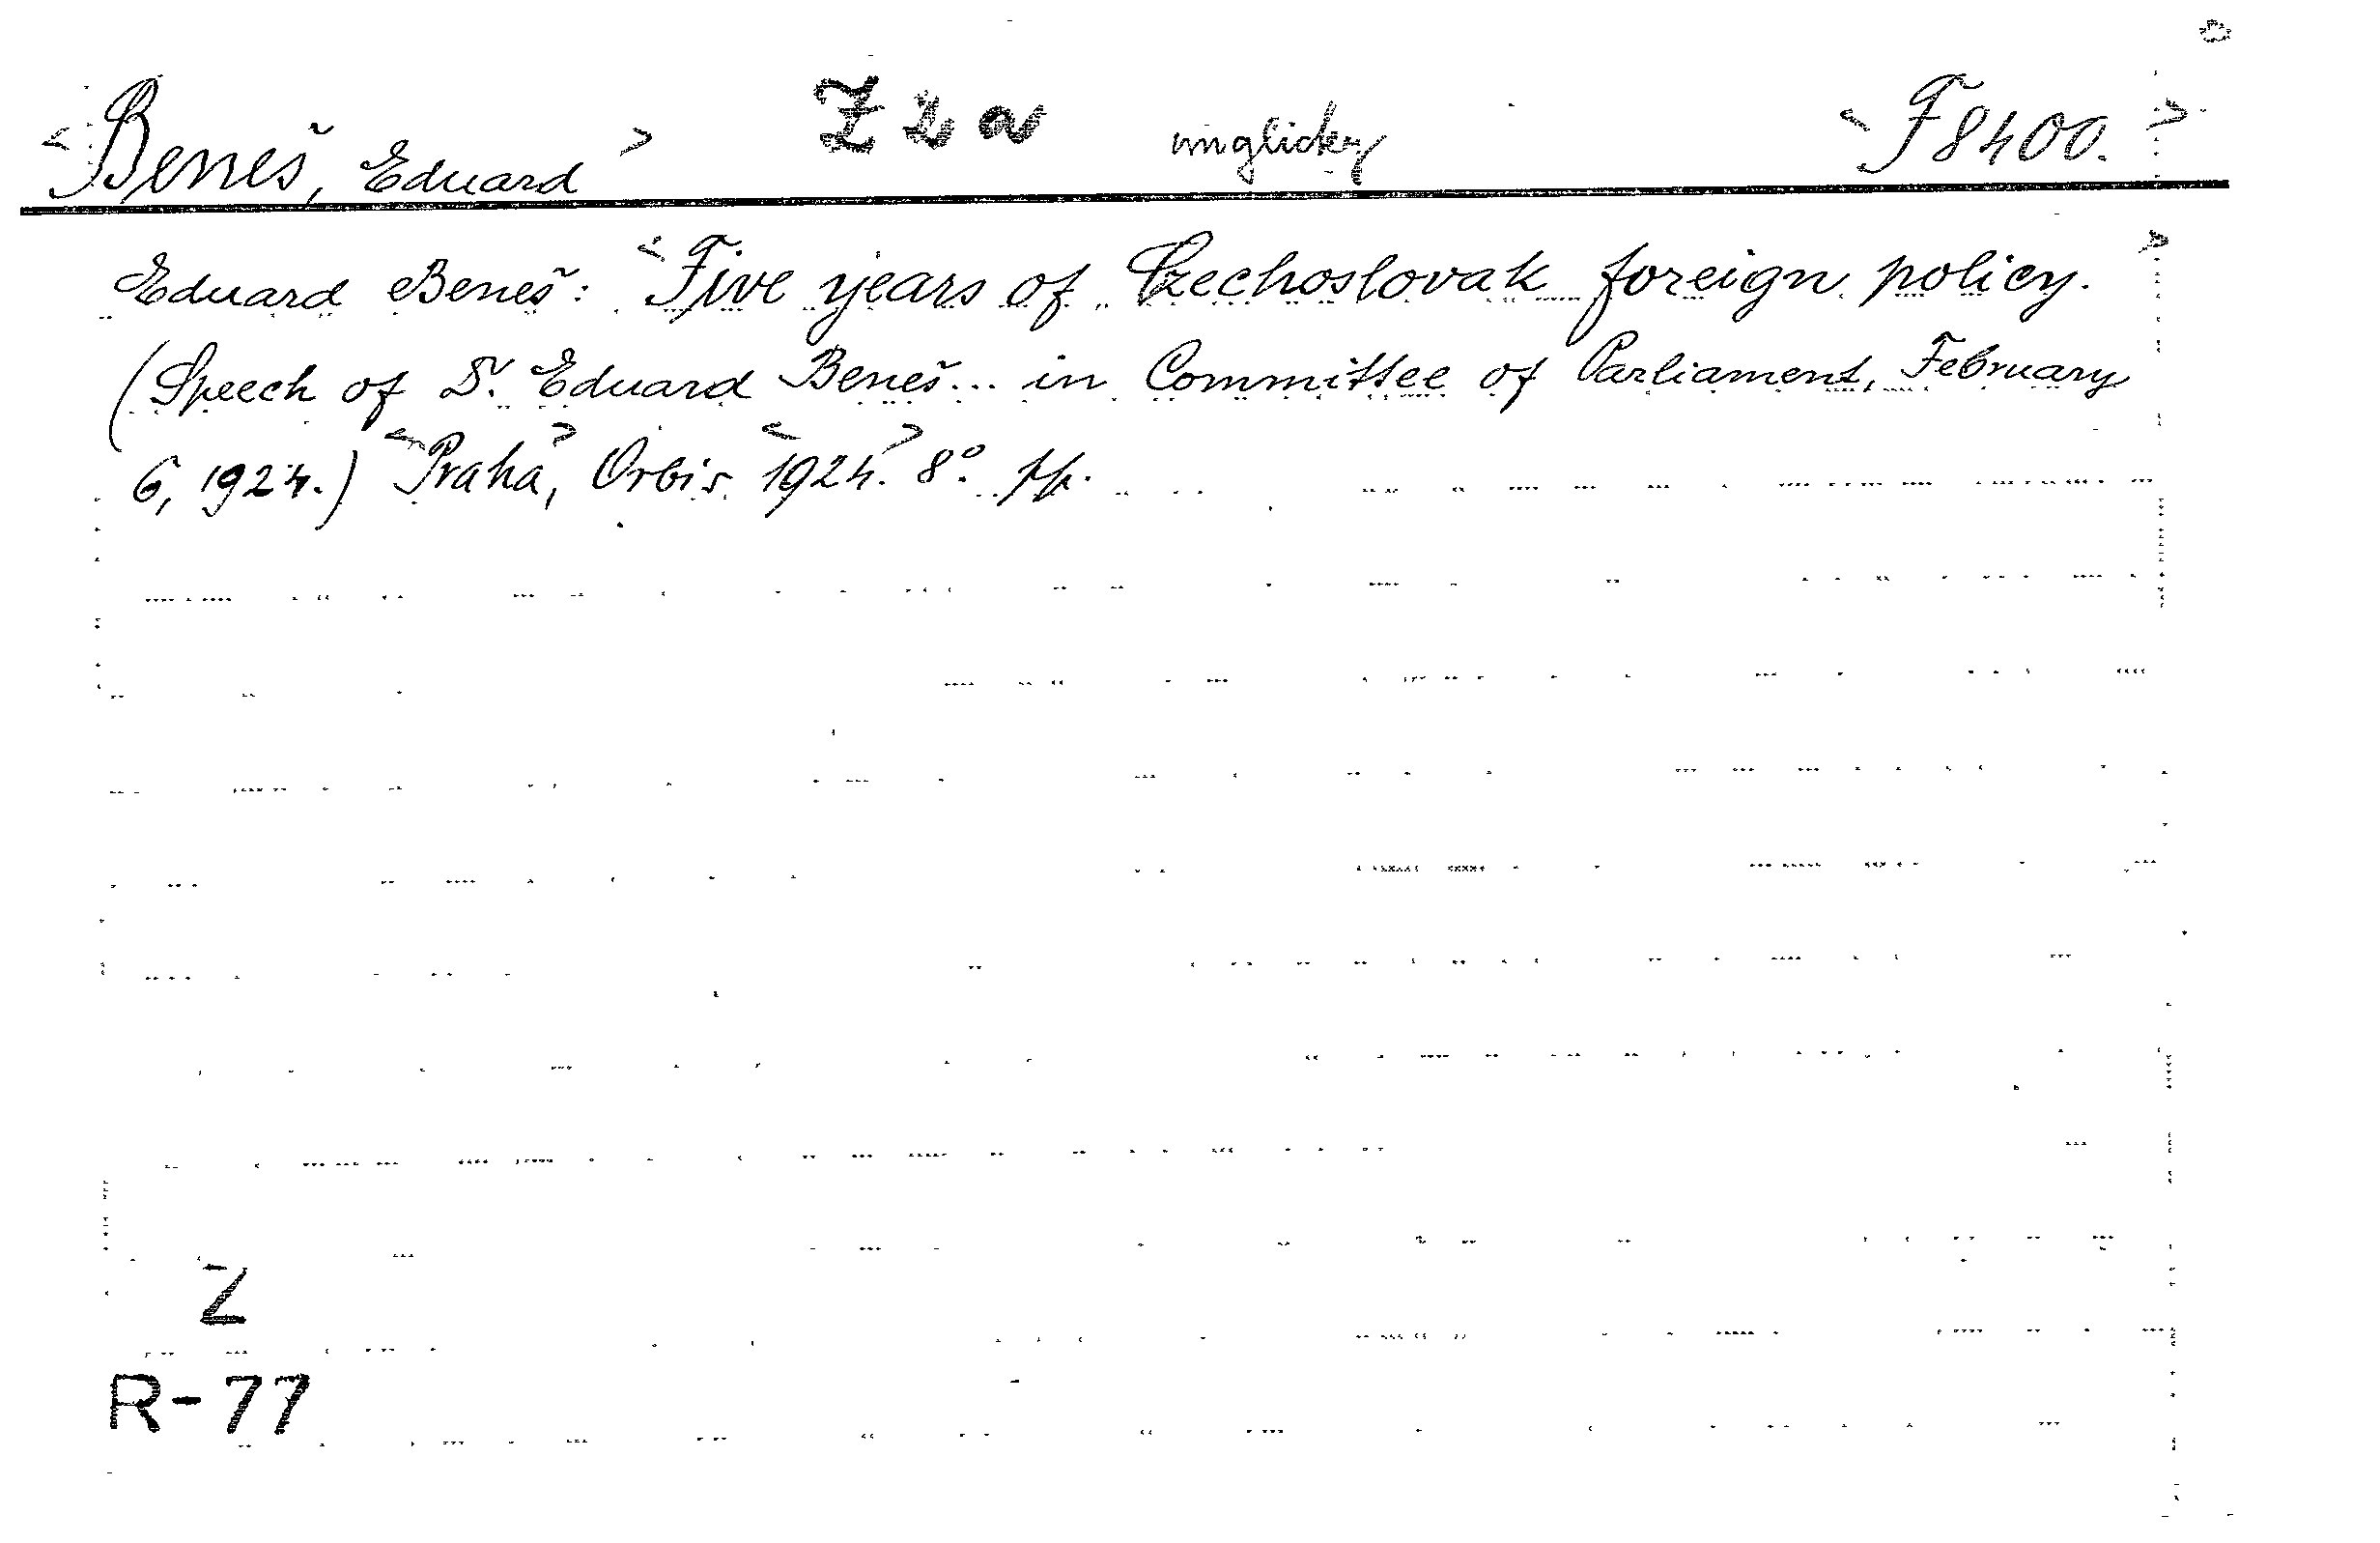 <Beneš, Eduard> Z 2 a anglicky <F 8400.>
Eduard Beneš: <Five years of Czechoslovak foreign policy.>
(Speech of Dr. Eduard Beneš... in Committee of Parliament, February
6, 1924.) <Praha>, Orbis <1924.> 8° pp.
Z
R-77